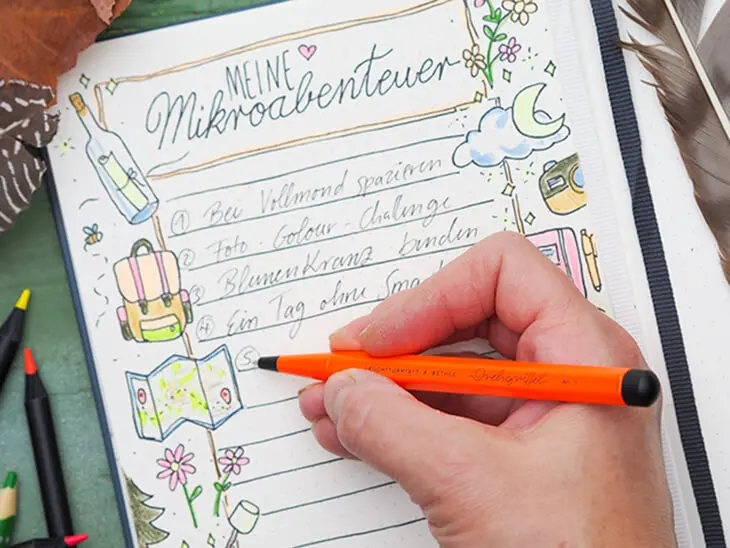 MEINE
Mikroabenteuer
1 Bei Vollmond spazieren
2 Foto-Colour-Challenge
3 Blumenkranz binden
4 Ein Tag ohne
5
LEUCHTTURM1917 Drehgriffel